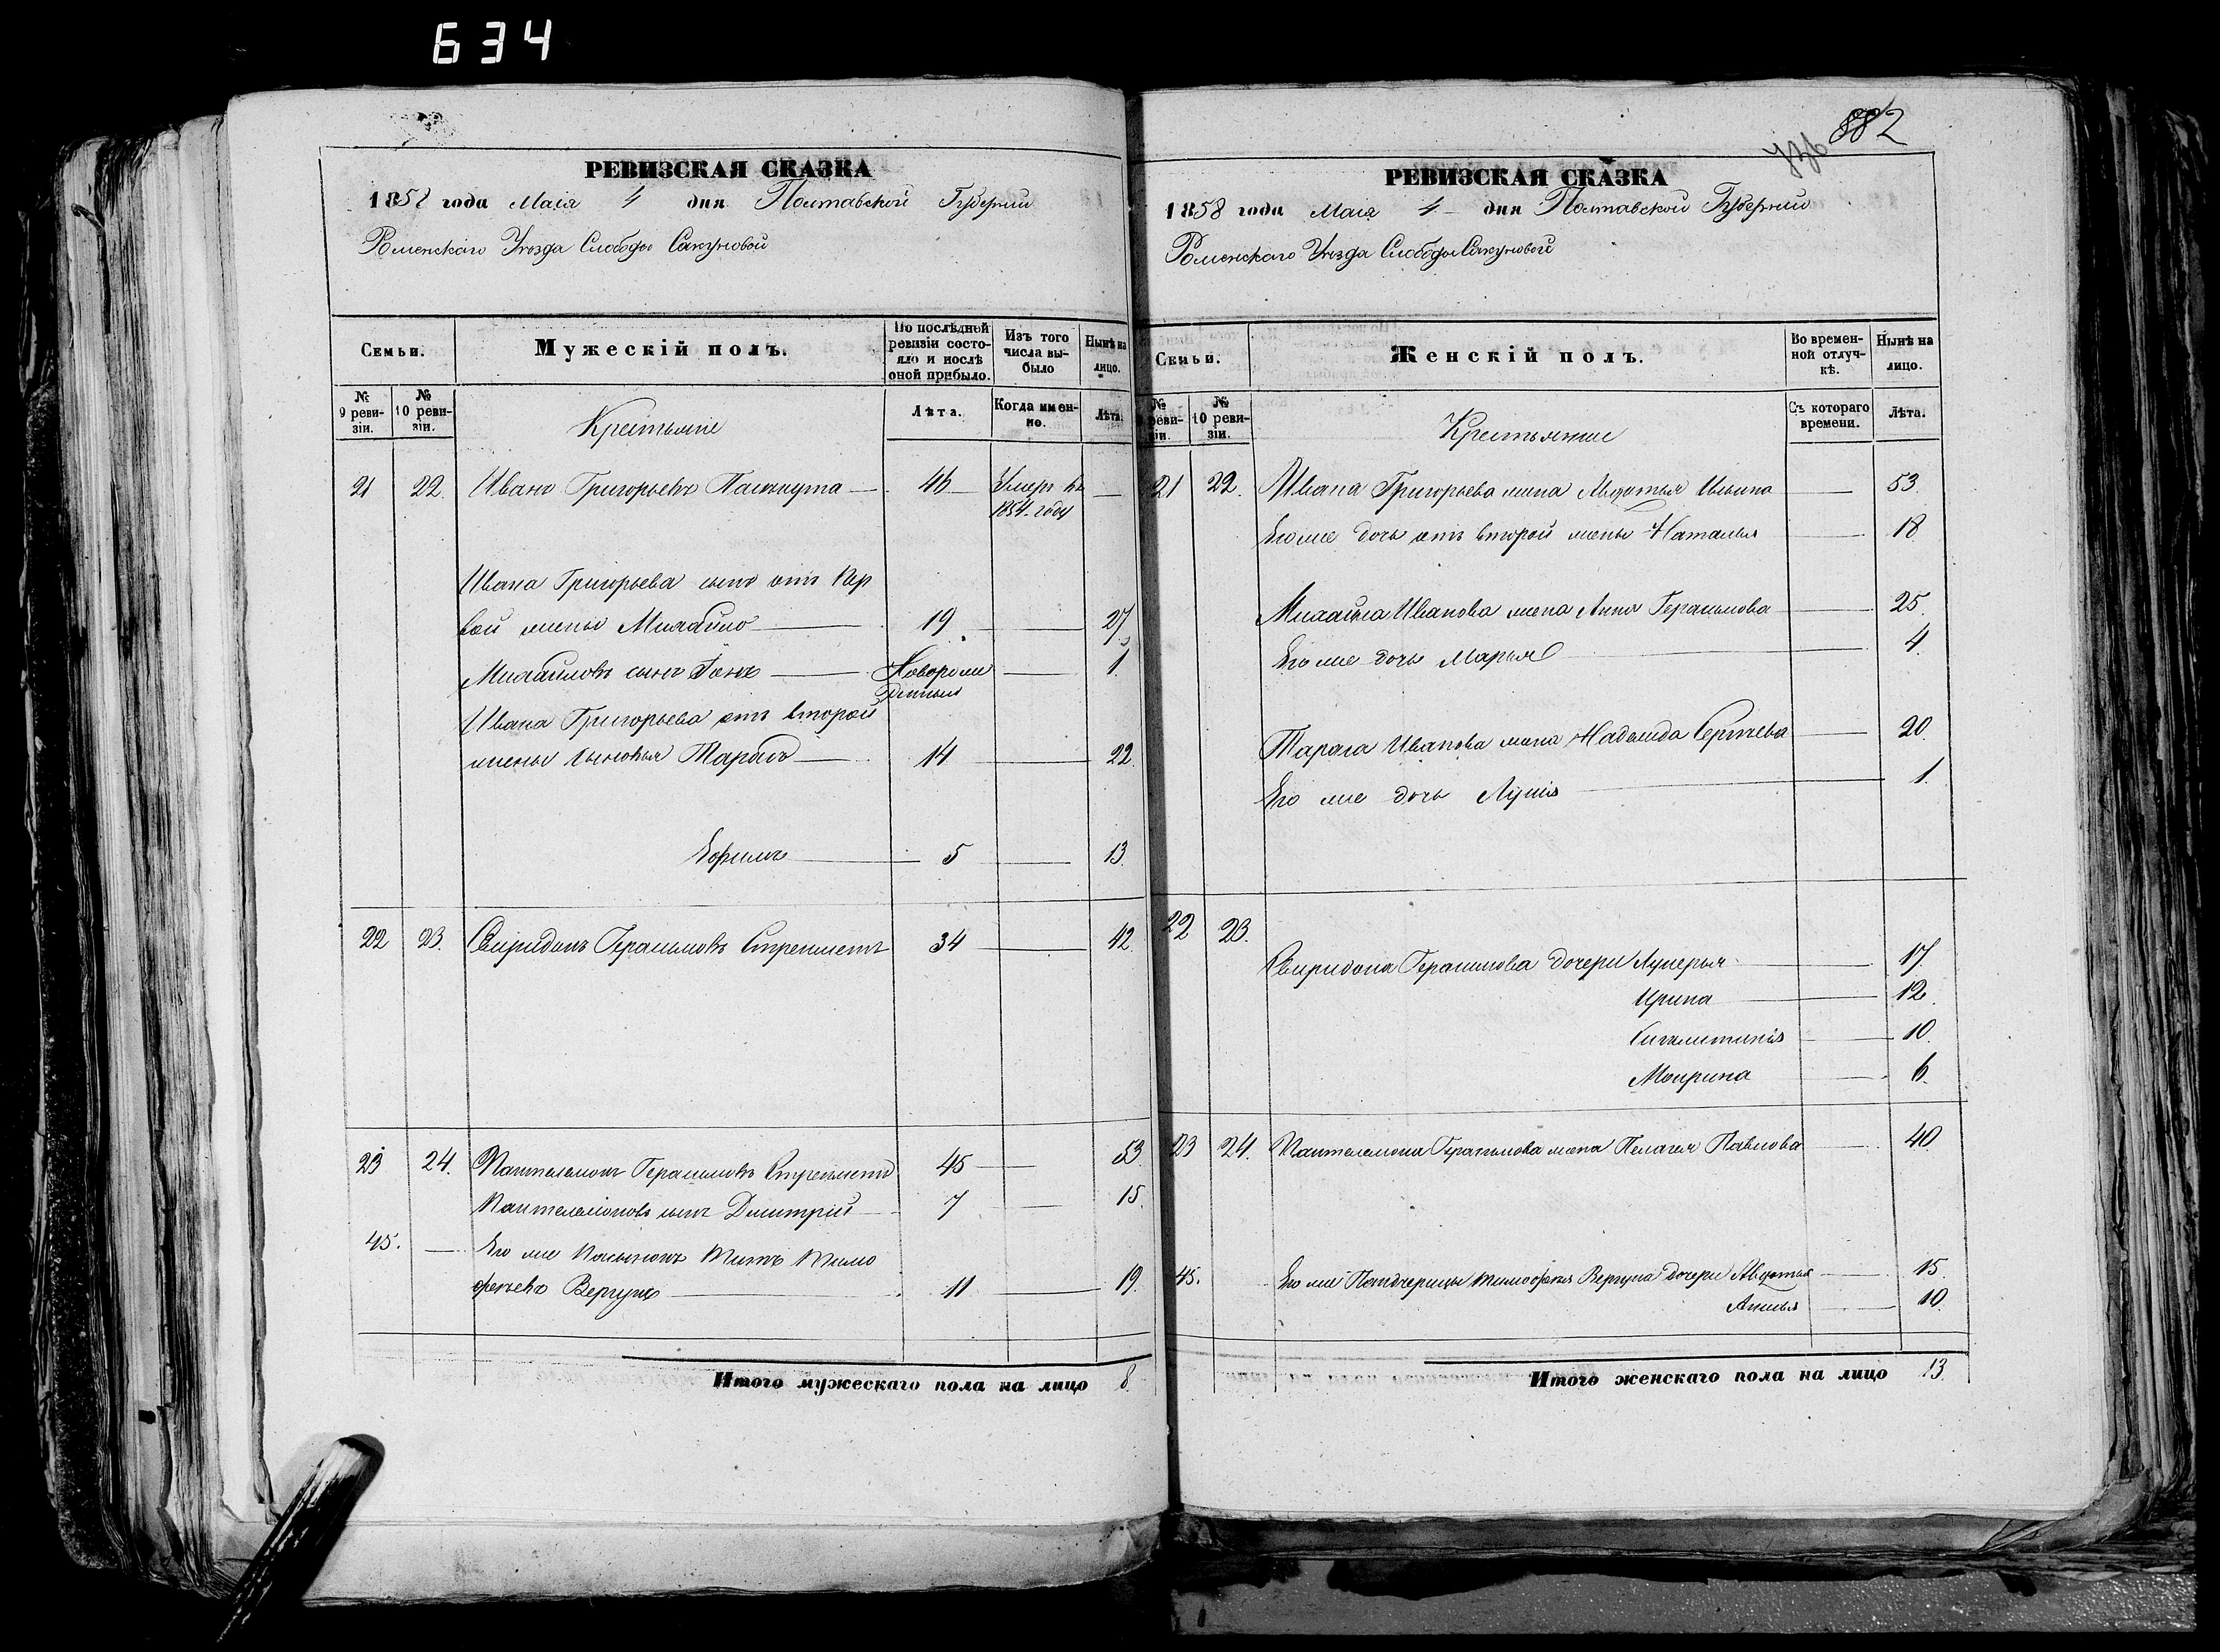 634
882
РЕВИЗСКАЯ СКАЗКА
1858 года Маія 4 дня Полтавской Губерніи
Роменскаго Уѣзда Слободы Сакуновой
Семьи.
Мужескій полъ.
По послѣдней ревизіи состояло и послѣ оной прибыло.
Изъ того числа выбыло
Нынѣ на лицо.
№ 9 ревизіи.
№ 10 ревизіи.
Крестьяне
Лѣта.
Когда именно.
Лѣта.
21 22. Иванъ Григорьевъ 46 Умеръ въ
1854 году
Ивана Григорьева сынъ отъ пер
вой жены Михайло 19 27
Михайловъ сынъ Новорож 1.
денный
Ивана Григорьева отъ второй
жены сыновья Тарасъ 14 22.
Ефимъ 5 13.
22 23. Свиридонъ Герасимовъ 34 42
23 24. Пантелемонъ Герасимовъ 45 53.
Пантелемоновъ сынъ Дмитрій 7 15.
45. Его же пасынокъ Титъ Тимо
феевъ Вергунъ 11 19.
Итого мужескаго пола на лицо 8.
РЕВИЗСКАЯ СКАЗКА
1858 года Маія 4 дня Полтавской Губерніи
Роменскаго Уѣзда Слободы Сакуновой
Семьи.
Женскій полъ.
Во временной отлучкѣ.
Нынѣ на лицо.
№ 9 ревизіи.
№ 10 ревизіи.
Крестьянне
Съ котораго времени.
Лѣта.
21 22. Ивана Григорьева жена Авдотья Ильина 53.
Его же дочь отъ второй жены Наталья 18
Михайла Иванова жена Анна Герасимова 25.
Его же дочь Марья 4.
Тараса Иванова жена Надежда Сергѣева 20.
Его же дочь 1.
22 23.
Свиридона Герасимова дочери Лукерья 17.
Ирина 12.
10.
6.
23 24. Пантелемона Герасимова жена Пелагея Павлова 40.
45. Его же Падчерицы Тимофея Вергуна дочери Авдотья 15.
10.
Итого женскаго пола на лицо 13.